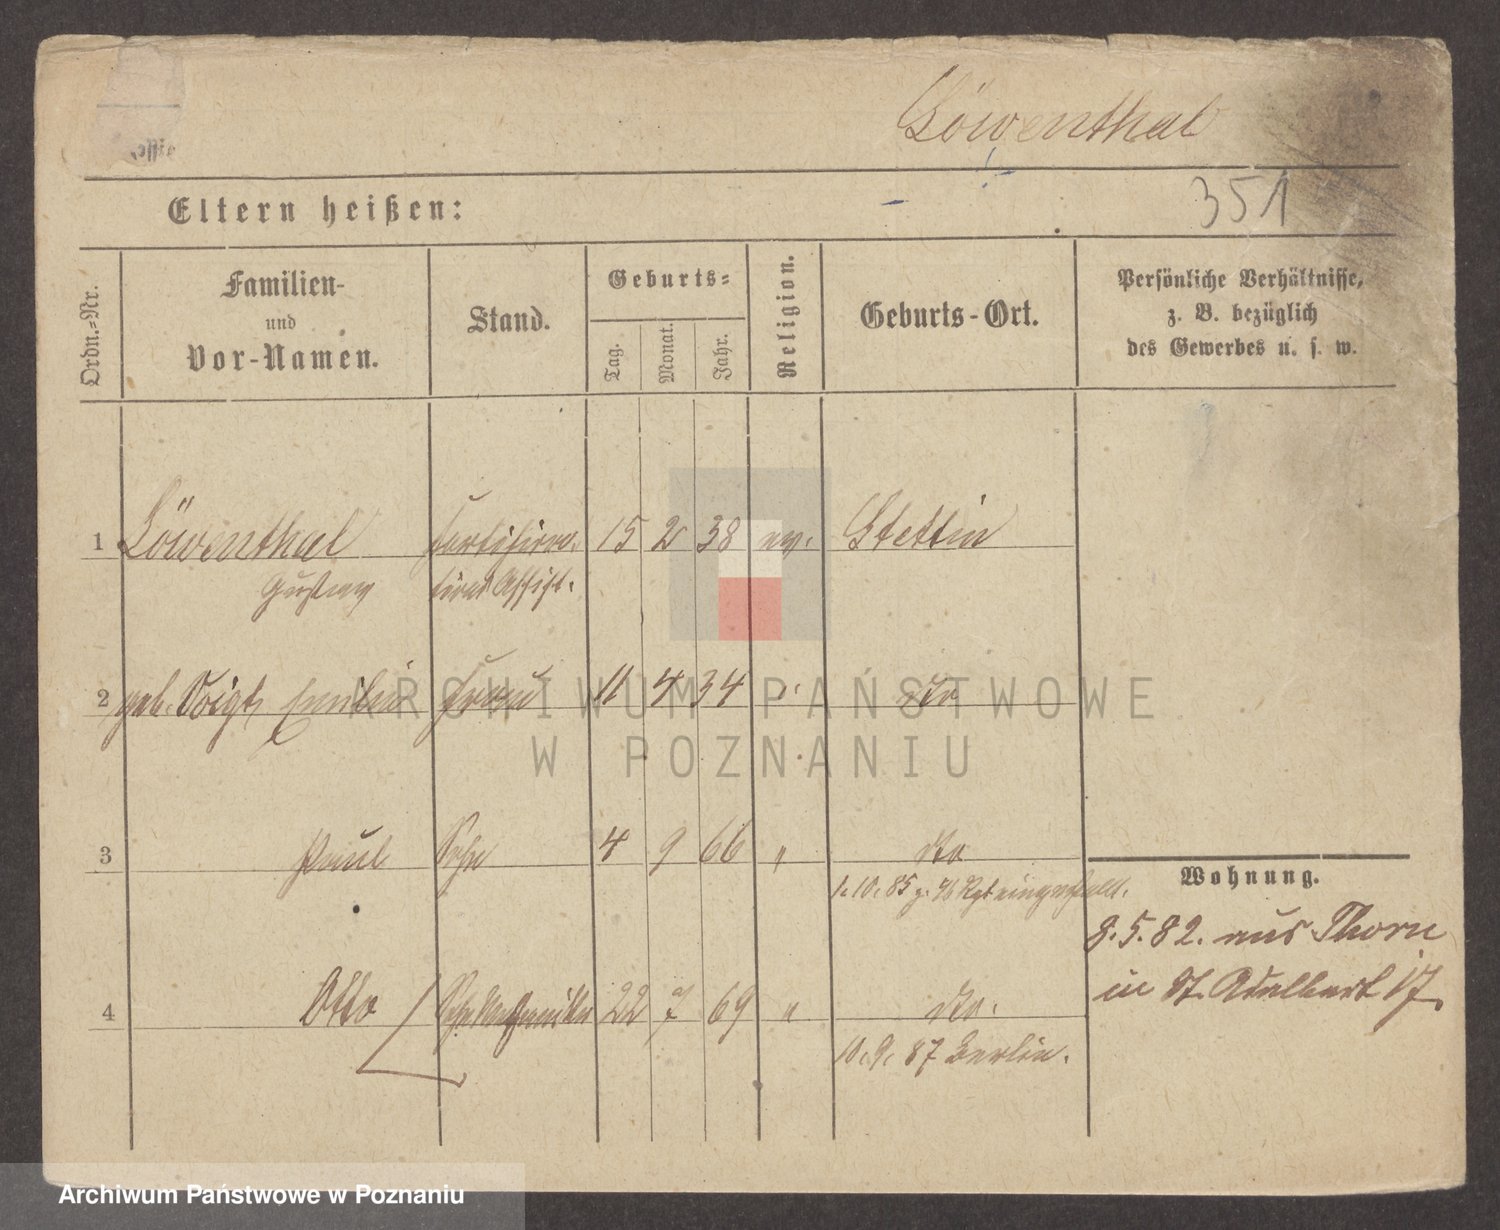 Löwenthal
351
Eltern heißen:
Ordn.-Nr.
Familien-
und
Vor-Namen.
Stand.
Geburts-
Tag.
Monat.
Jahr.
Religion.
Geburts-Ort.
Persönliche Verhältnisse,
z. B. bezüglich
des Gewerbes u. s. w.
1 Löwenthal Fortifica- 15 2 38 ev. Stettin
Gustav tions Assist.
2 geb. Voigt, Emilie Frau 11 4 34 " dto
3 Paul Sohn 4 9 66 " dto
1.10.85 z. 46 Rgt eingestellt.
Wohnung.
8.5.82. aus Thorn
in St. Adalbert 17.
4 Otto Sohn Mechaniker 22 7 69 " dto.
10.9.87 Berlin.
ARCHIWUM PAŃSTWOWE
W POZNANIU
Archiwum Państwowe w Poznaniu